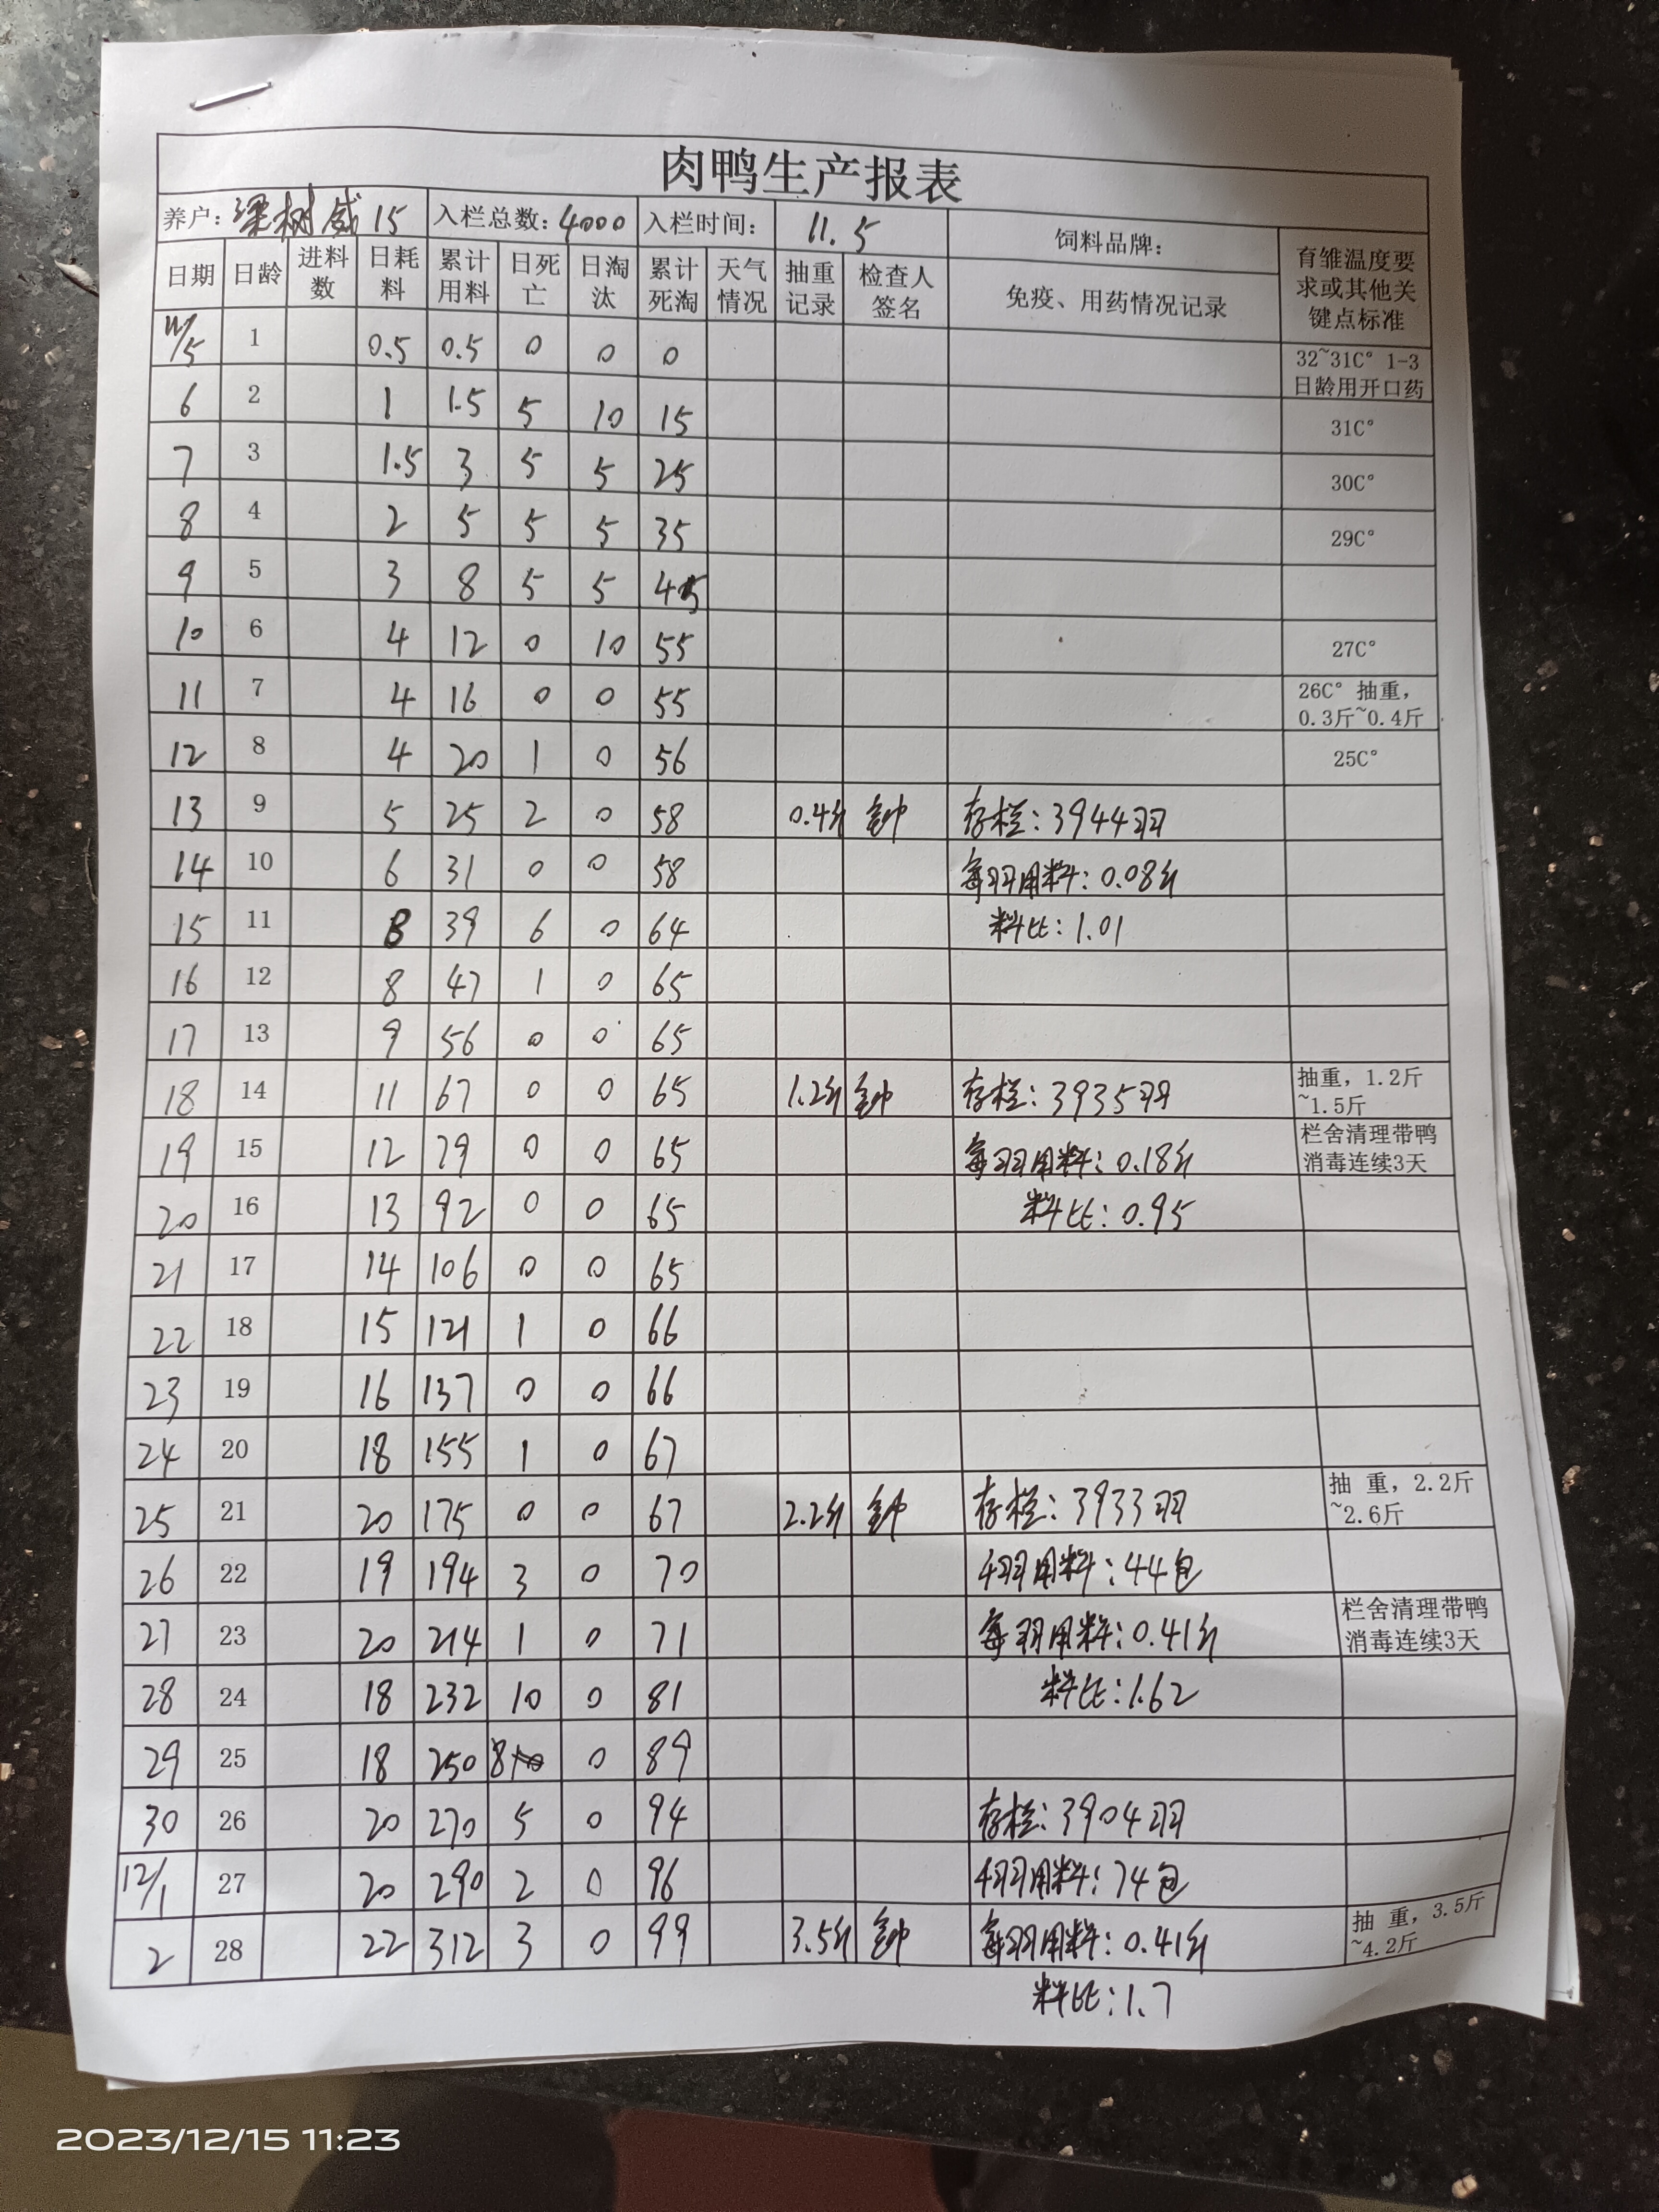 肉鸭生产报表
养户: 梁树威 15 入栏总数: 4000 入栏时间: 11.5 饲料品牌:
日期 日龄 进料数 日耗料 累计用料 日死亡 日淘汰 累计死淘 天气情况 抽重记录 检查人签名 免疫、用药情况记录 育雏温度要求或其他关键点标准
11/5 1 0.5 0.5 0 0 0 32~31C° 1-3日龄用开口药
6 2 1 1.5 5 10 15 31C°
7 3 1.5 3 5 5 25 30C°
8 4 2 5 5 5 35 29C°
9 5 3 8 5 5 45
10 6 4 12 0 10 55 27C°
11 7 4 16 0 0 55 26C° 抽重，0.3斤~0.4斤
12 8 4 20 1 0 56 25C°
13 9 5 25 2 0 58 0.4斤 钟 存栏: 3944羽
14 10 6 31 0 0 58 每羽用料: 0.08斤
15 11 8 39 6 0 64 料比: 1.01
16 12 8 47 1 0 65
17 13 9 56 0 0 65
18 14 11 67 0 0 65 1.2斤 钟 存栏: 3935羽 抽重，1.2斤~1.5斤
19 15 12 79 0 0 65 每羽用料: 0.18斤 栏舍清理带鸭消毒连续3天
20 16 13 92 0 0 65 料比: 0.95
21 17 14 106 0 0 65
22 18 15 121 1 0 66
23 19 16 137 0 0 66
24 20 18 155 1 0 67
25 21 20 175 0 0 67 2.2斤 钟 存栏: 3933羽 抽 重，2.2斤~2.6斤
26 22 19 194 3 0 70 千羽用料: 44包
27 23 20 214 1 0 71 每羽用料: 0.41斤 栏舍清理带鸭消毒连续3天
28 24 18 232 10 0 81 料比: 1.62
29 25 18 250 8 0 89
30 26 20 270 5 0 94 存栏: 3904羽
12/1 27 20 290 2 0 96 千羽用料: 74包
2 28 22 312 3 0 99 3.5斤 钟 每羽用料: 0.41斤 抽 重，3.5斤~4.2斤
料比: 1.7
2023/12/15 11:23